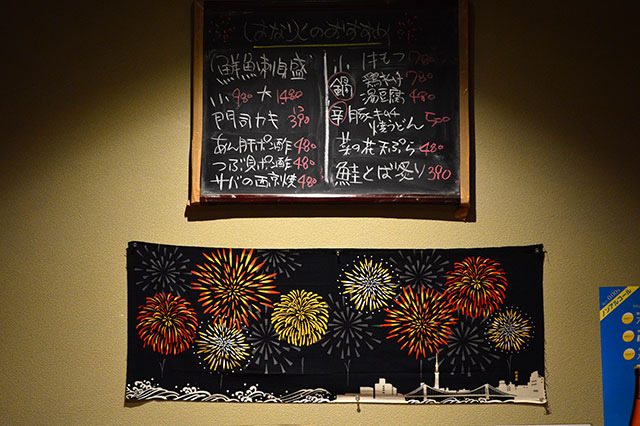 はなりとのおすすめ
鮮魚刺身盛
小 980 大 1480
門司カキ 1コ 390
あん肝ポン酢 480
つぶ貝ポン酢 480
サバの西京焼 480
小 はもつ 780
鍋 鶏モツ 780
湯豆腐 480
辛 豚キムチ
焼うどん 500
菜の花天ぷら 480
鮭とば炙り 390
ノンアルコール